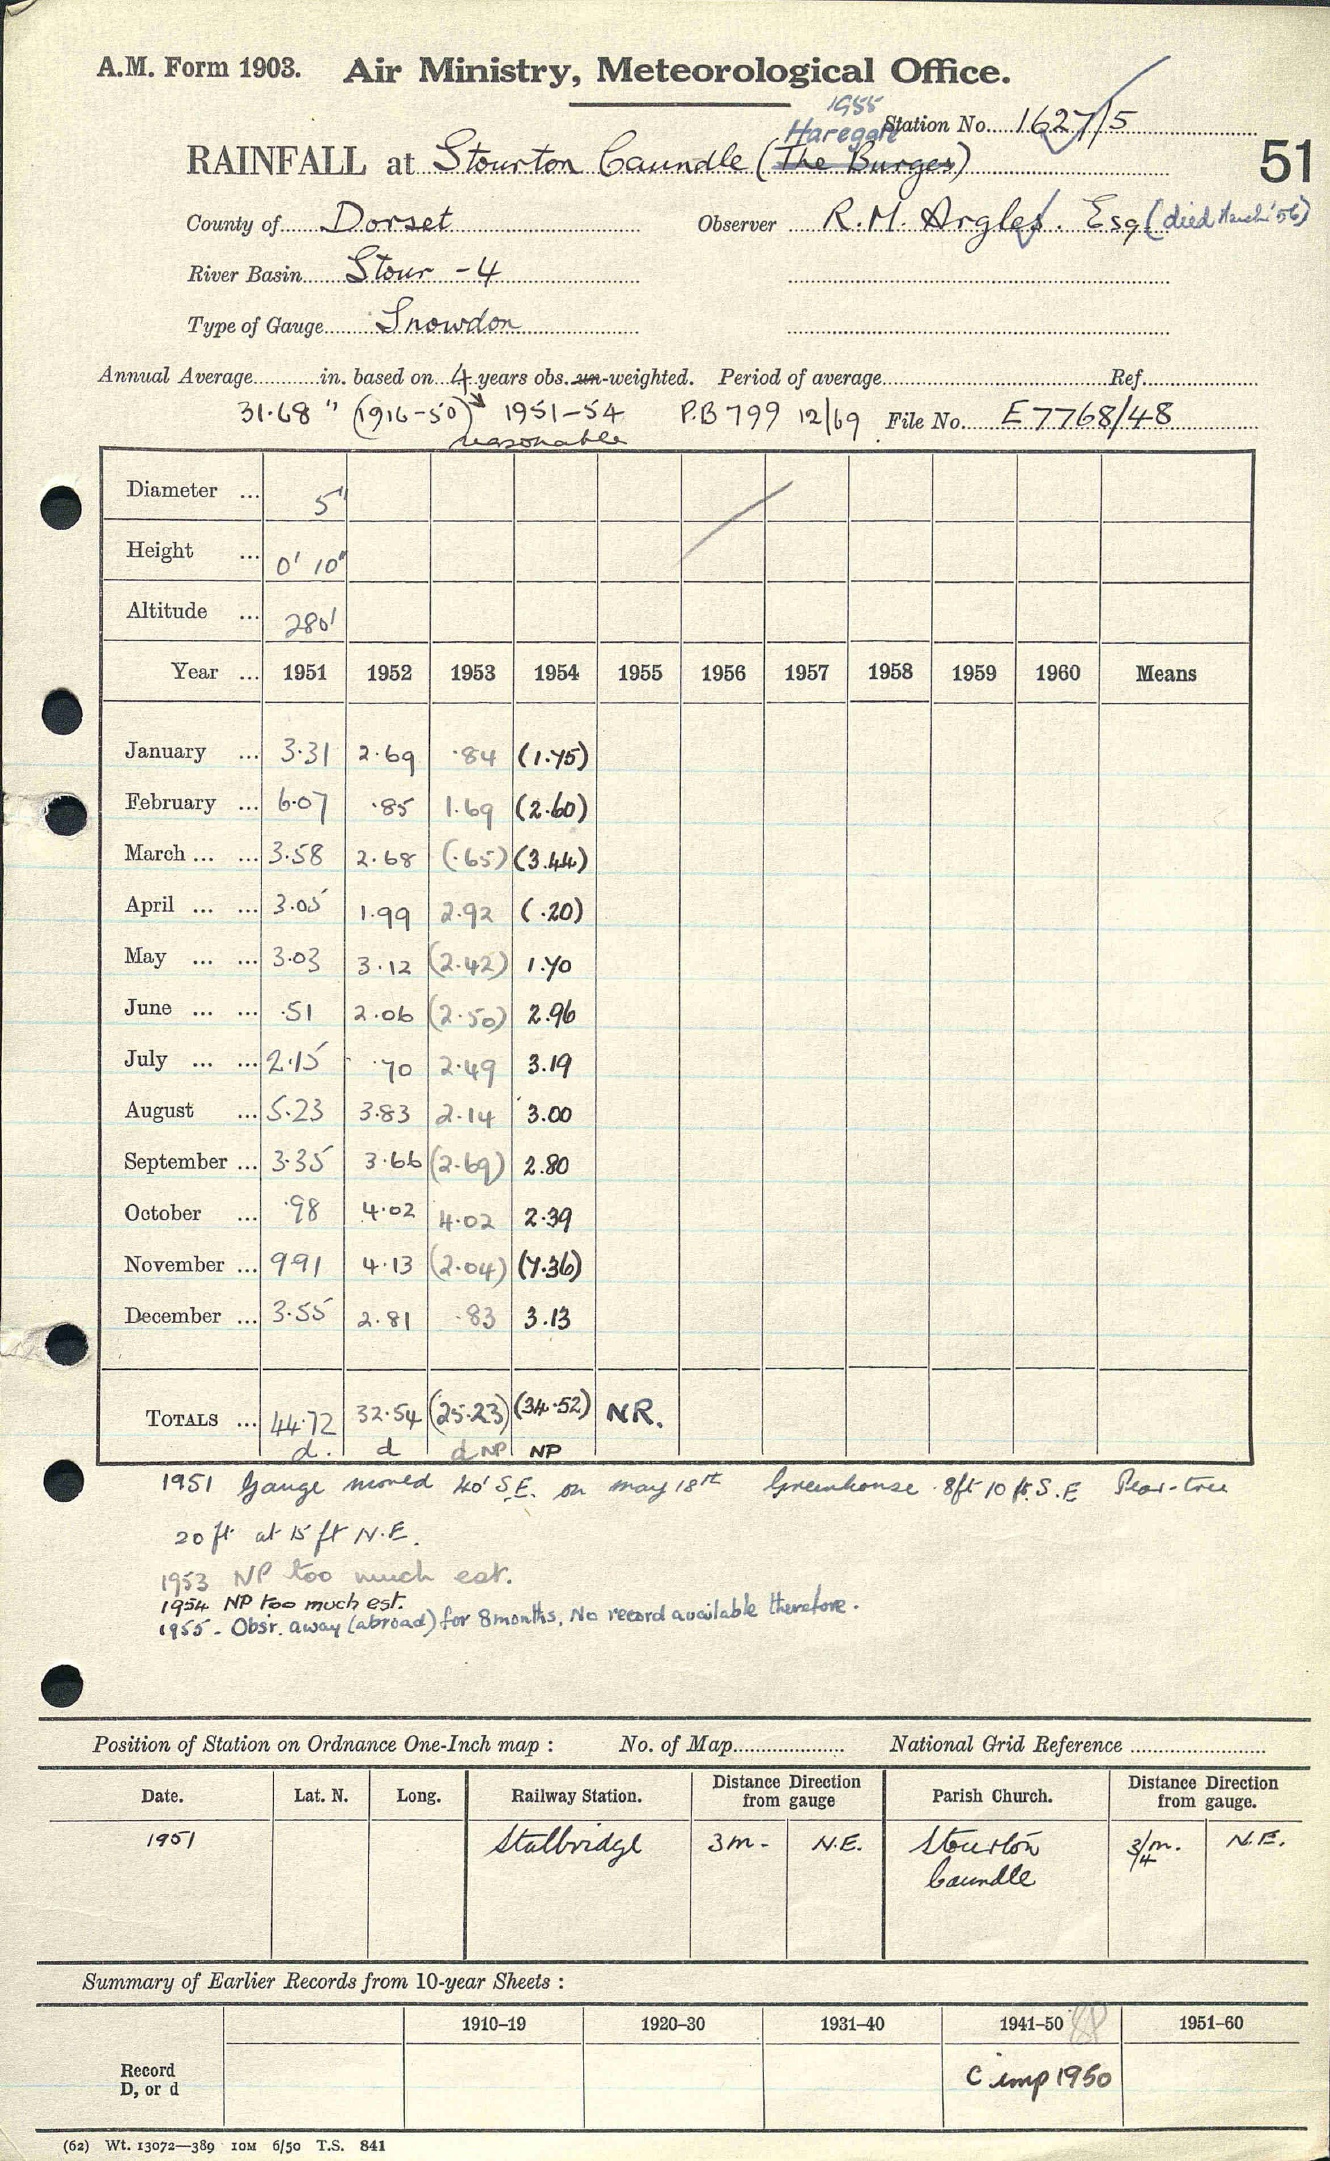 A.M. Form 1903. Air Ministry, Meteorological Office.
1955
Haregate
Station No. 1627/5
51
RAINFALL at Stourton Caundle (The Burges)
County of Dorset Observer R.M. Argles. Esq (died March '56)
River Basin Stour -4
Type of Gauge Snowdon
Annual Average in. based on 4 years obs. un-weighted. Period of average Ref.
31.68 " (1916-50) 1951-54 P.B 799 12/69 File No. E7768/48
reasonable
Diameter ... 5"
Height ... 0' 10"
Altitude ... 280'
Year ... 1951 1952 1953 1954 1955 1956 1957 1958 1959 1960 Means
January ... 3.31 2.69 .84 (1.75)
February ... 6.07 .85 1.69 (2.60)
March ... ... 3.58 2.68 (.65) (3.44)
April ... ... 3.05 1.99 2.92 (.20)
May ... ... 3.03 3.12 (2.42) 1.70
June ... ... .51 2.06 (2.50) 2.96
July ... ... 2.15 .70 2.49 3.19
August ... 5.23 3.83 2.14 3.00
September ... 3.35 3.66 (2.69) 2.80
October ... .98 4.02 4.02 2.39
November ... 9.91 4.13 (2.04) (7.36)
December ... 3.55 2.81 .83 3.13
TOTALS ... 44.72 32.54 (25.23) (34.52) NR.
d. d d NP NP
1951 Gauge moved 40' S.E. on May 18th Greenhouse 8ft 10 ft. S.E Pear-tree
20 ft at 15 ft N.E.
1953 NP too much est.
1954 NP too much est.
1955 - Obsr. away (abroad) for 8 months, No record available therefore.
Position of Station on Ordnance One-Inch map : No. of Map National Grid Reference
Date. Lat. N. Long. Railway Station. Distance Direction from gauge Parish Church. Distance Direction from gauge.
1951 Stalbridge 3m. N.E. Stourton Caundle 3/4 m. N.E.
Summary of Earlier Records from 10-year Sheets :
1910–19 1920–30 1931–40 1941–50 1951–60
Record
D, or d
C imp 1950
(62) Wt. 13072—389 10M 6/50 T.S. 841